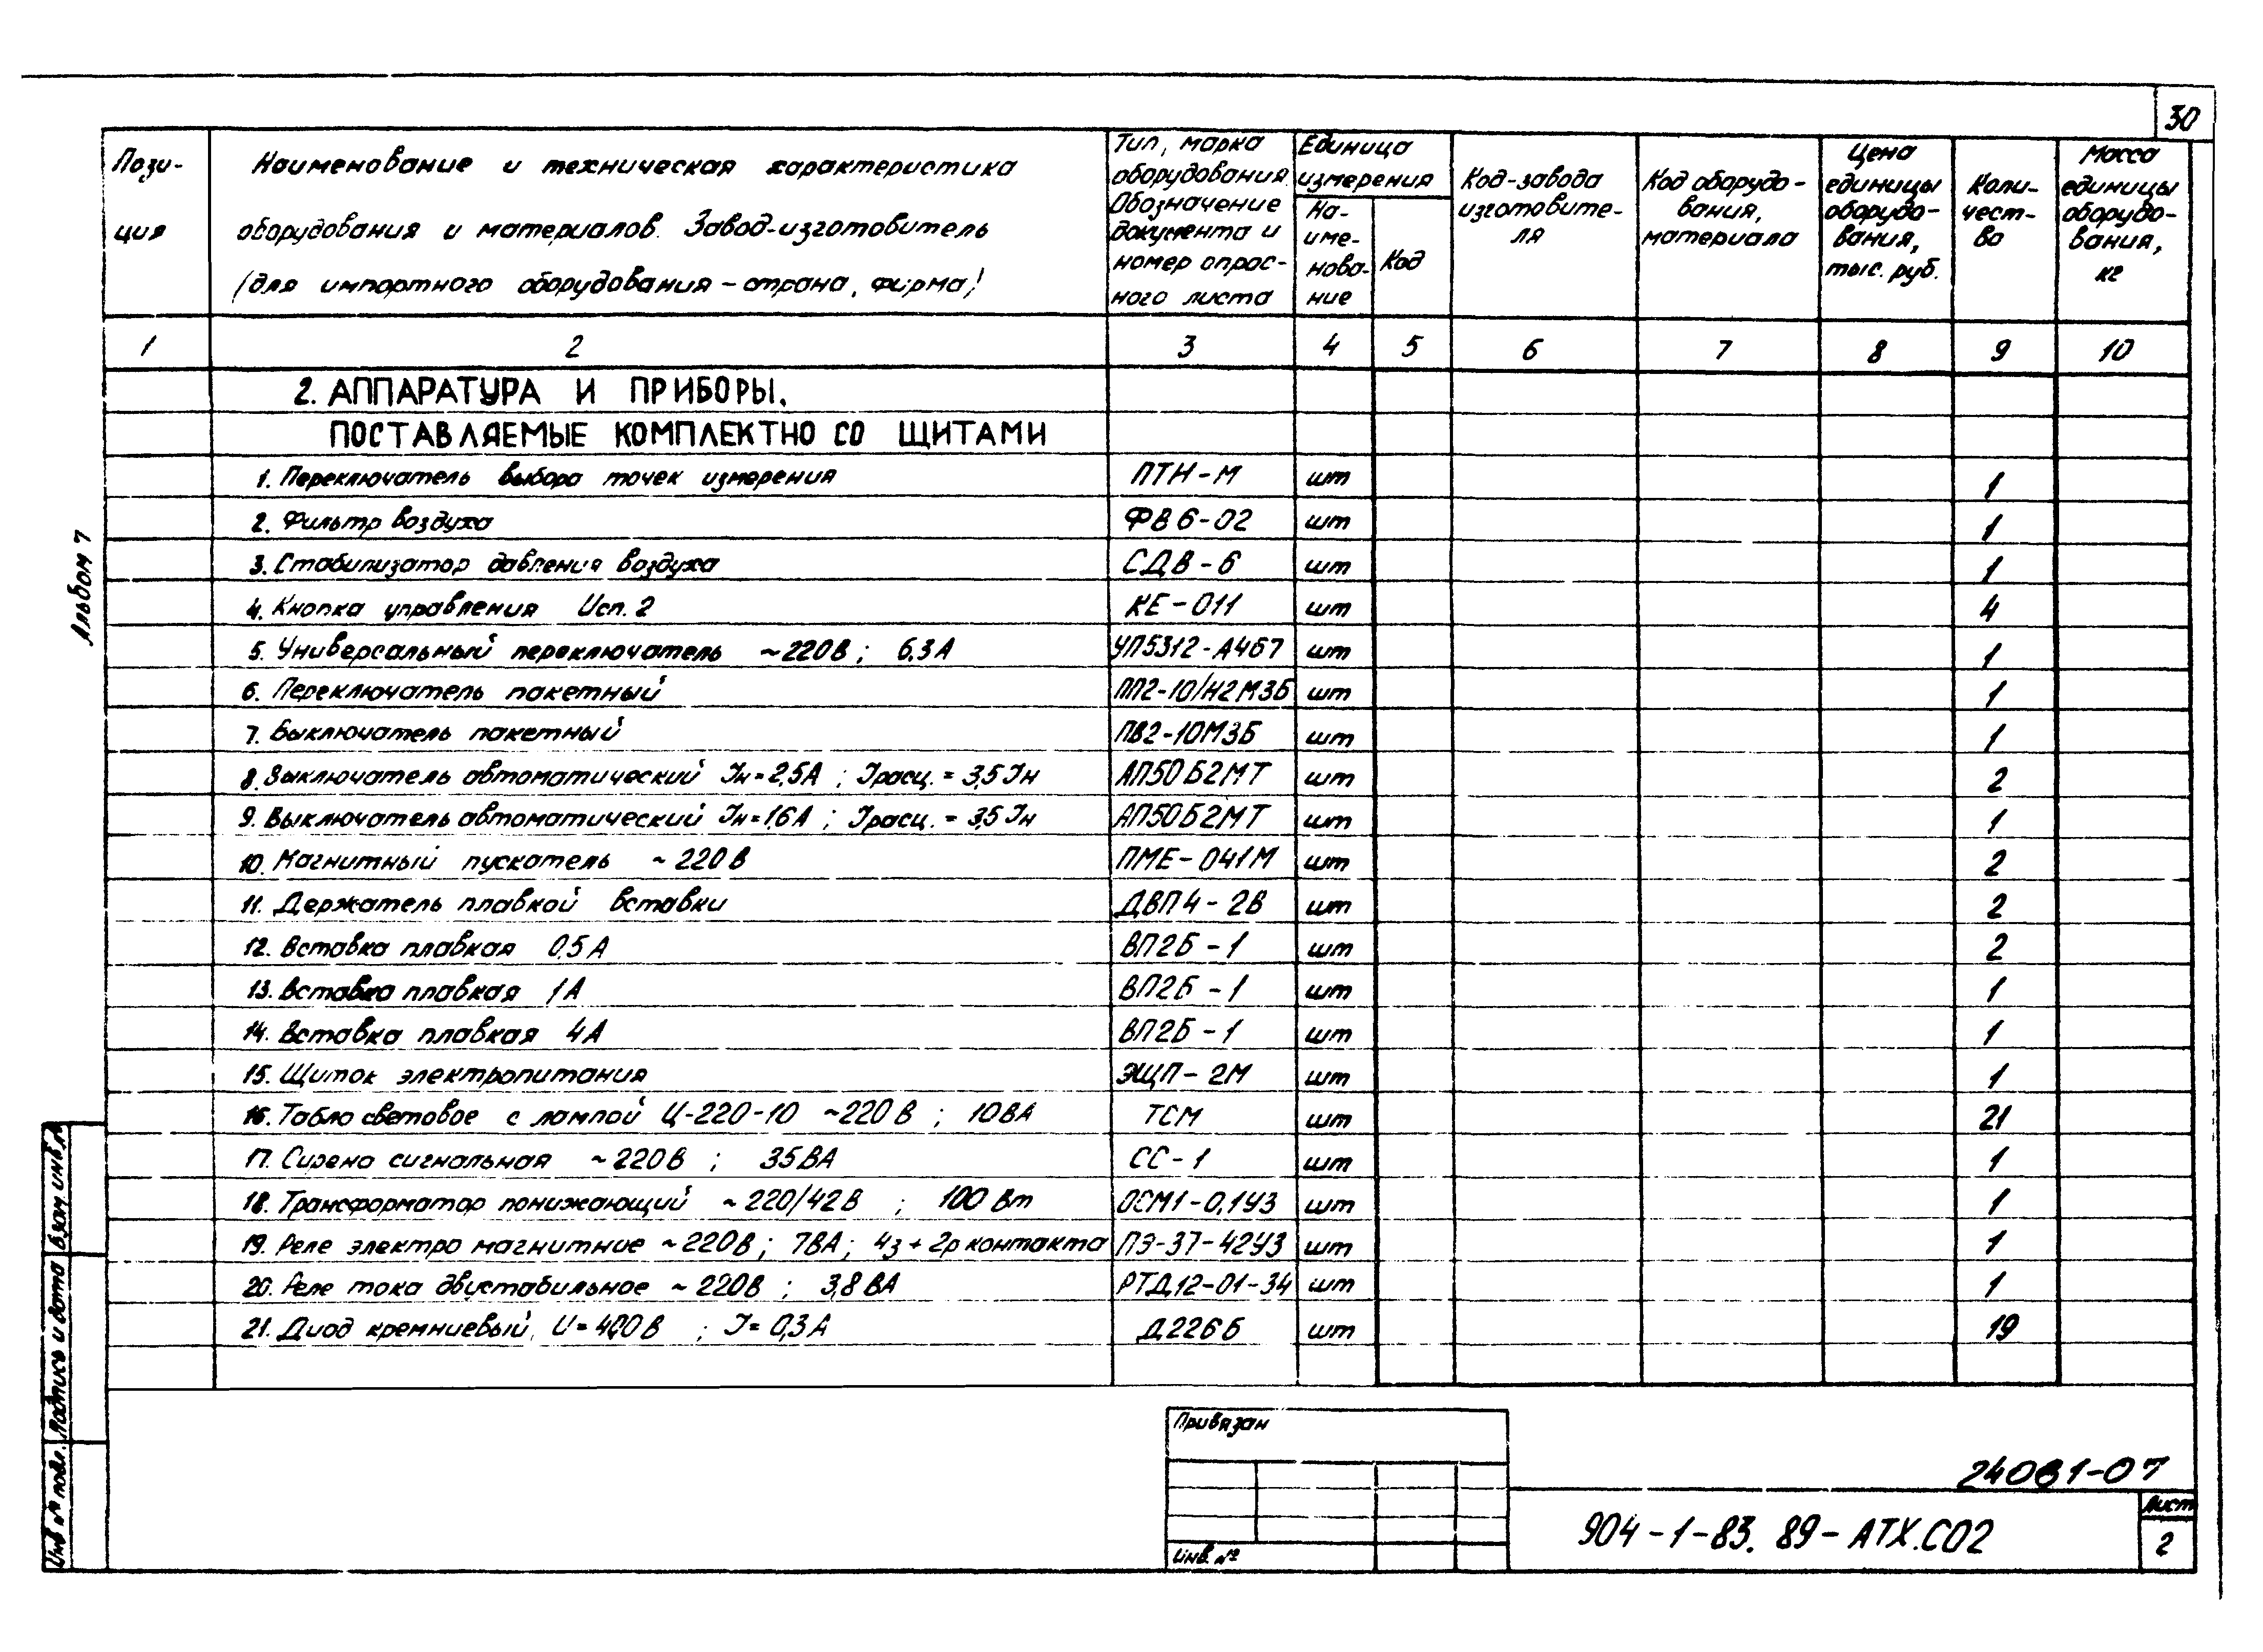 30
Пози-
ция
Наименование и техническая характеристика
оборудования и материалов. Завод-изготовитель
(для импортного оборудования – страна, фирма)
Тип, марка
оборудования.
Обозначение
документа и
номер опрос-
ного листа
Единица
измерения
На-
име-
нова-
ние
Код
Код-завода
изготовите-
ля
Код оборудо-
вания,
материала
Цена
единицы
оборудо-
вания,
тыс. руб.
Коли-
чест-
во
Масса
единицы
оборудо-
вания,
кг
1 2 3 4 5 6 7 8 9 10
2. АППАРАТУРА И ПРИБОРЫ,
ПОСТАВЛЯЕМЫЕ КОМПЛЕКТНО СО ЩИТАМИ
1. Переключатель выбора точек измерения ПТН-М шт 1
2. Фильтр воздуха ФВ6-02 шт 1
3. Стабилизатор давления воздуха СДВ-6 шт 1
4. Кнопка управления Исп. 2 КЕ-011 шт 4
5. Универсальный переключатель ~220В; 6,3А УП5312-А467 шт 1
6. Переключатель пакетный ПП2-10/Н2М3Б шт 1
7. Выключатель пакетный ПВ2-10М3Б шт 1
8. Выключатель автоматический Iн=2,5А; Iрасц.=3,5Iн АП50Б2МТ шт 2
9. Выключатель автоматический Iн=1,6А; Iрасц.=3,5Iн АП50Б2МТ шт 1
10. Магнитный пускатель ~220В ПМЕ-041М шт 2
11. Держатель плавкой вставки ДВП4-2В шт 2
12. Вставка плавкая 0,5А ВП2Б-1 шт 2
13. Вставка плавкая 1А ВП2Б-1 шт 1
14. Вставка плавкая 4А ВП2Б-1 шт 1
15. Щиток электропитания ЭЩП-2М шт 1
16. Табло световое с лампой Ц-220-10 ~220В; 10ВА ТСМ шт 21
17. Сирена сигнальная ~220В; 35ВА СС-1 шт 1
18. Трансформатор понижающий ~220/42В; 100 Вт ОСМ1-0,1У3 шт 1
19. Реле электро магнитное ~220В; 7ВА; 4з+2р контакта ПЭ-37-42У3 шт 1
20. Реле тока двустабильное ~220В; 3,8ВА РТД12-01-34 шт 1
21. Диод кремниевый, U=400В; I=0,3А Д226Б шт 19
Альбом 7
Взам. инв. №
Подпись и дата
Инв № подл.
Привязан
Инв. №
24081-07
904-1-83.89-АТХ.СО2
Лист
2